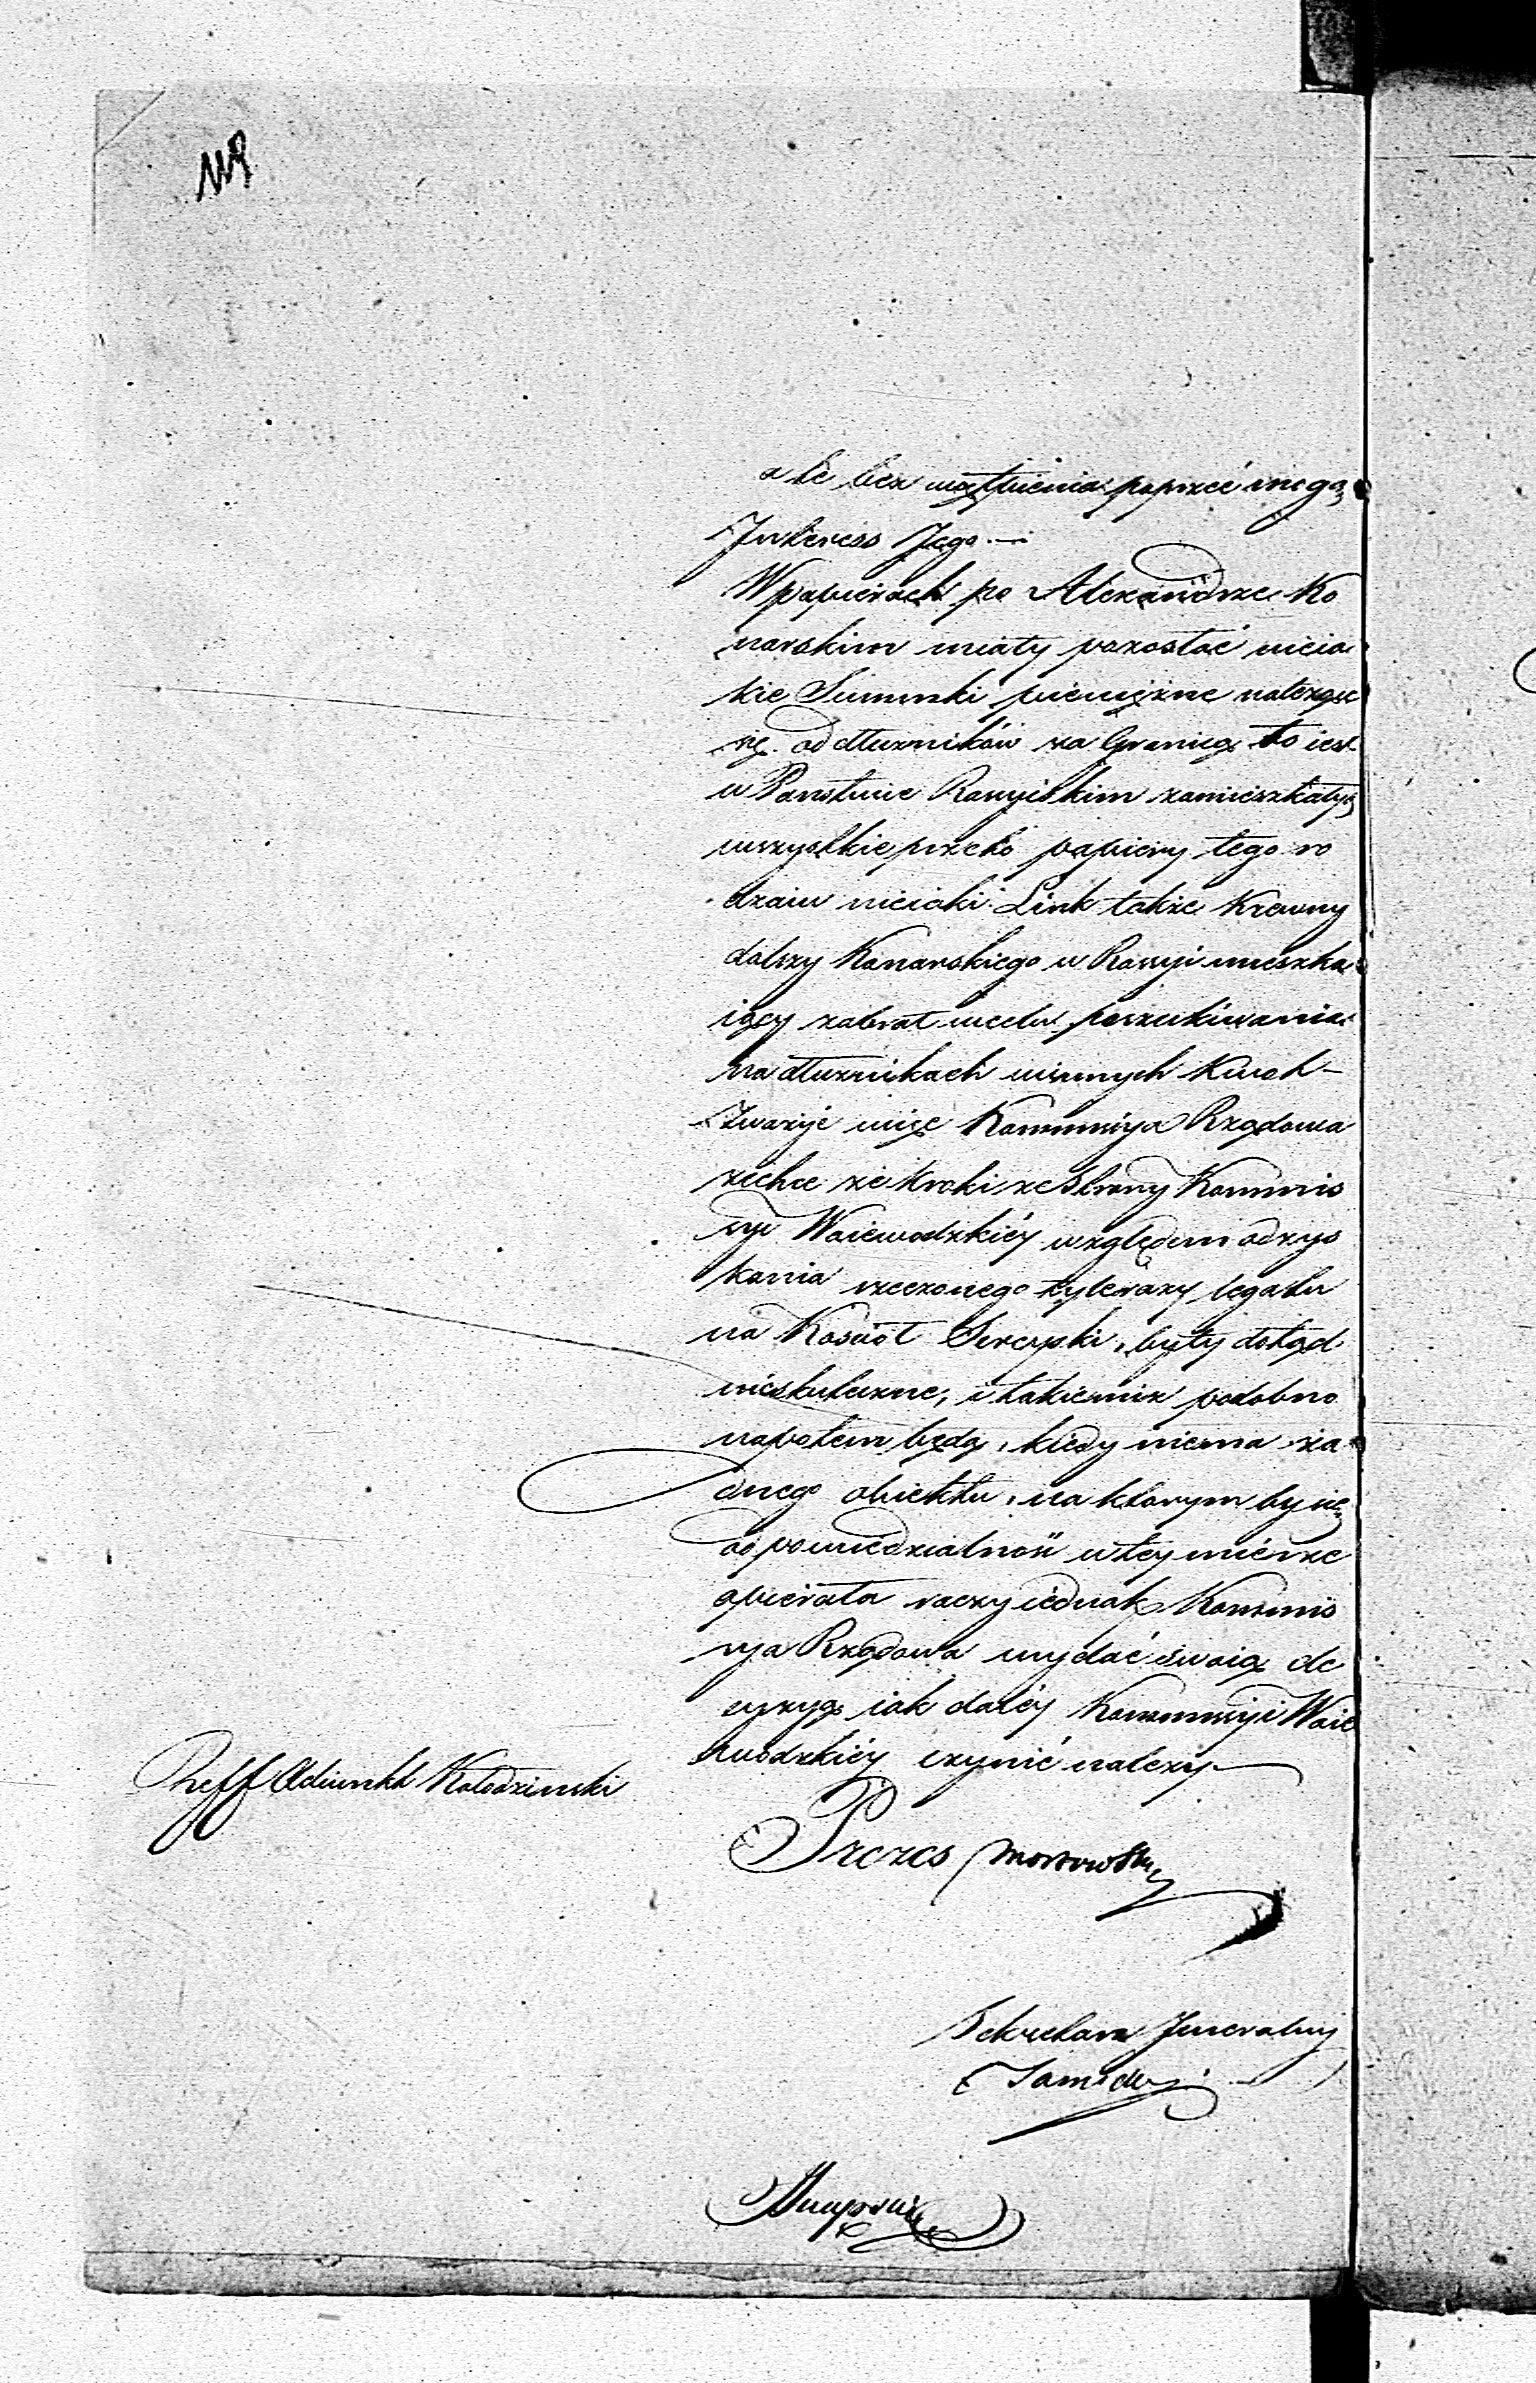 ale bez wątpienia poprzeć mogą
Interess Jego.—
W papierach po Alexandrze Ko
narskim miały pozostać nieia
kie Summki pieniężne należące
się od dłużników za Granicą to iest
w Państwie Rossyiskim zamieszkałych
wszystkie przeto papiery tego ro
dzaiu nieiaki Link także Krewny
dalszy Konarskiego w Rossyi mieszka
iący zabrał w celu poszukiwania
na dłużnikach winnych Kwot—
Zważyć więc Kommissya Rządowa
zechce że kroki ze Strony Kommis
syi Woiewodzkiéy względem odzys
kania rzeczonego tylerazy legatu
na Kosciół Sierpski, były dotąd
nieskuteczne, i takiemiż podobno
napotem będą, kiedy niema ża
dnego obiektu, na ktorym by się
odpowiedzialność w tey mierze
opierała raczy iednak Kommis
sya Rządowa wydać swoię de
cyzyą iak daléy Kommissyi Woie
wodzkiéy czynić należy.—
Reff Adiunkt Kołodzinski
Prezes
Sekretarz Jeneralny